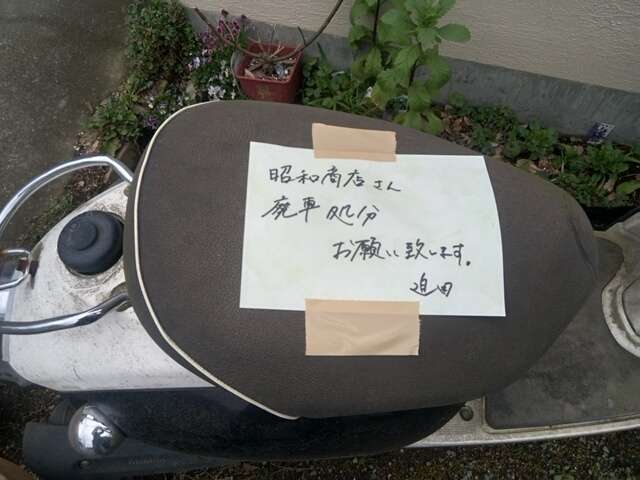 昭和商店さん
廃車処分
お願い致します。
迫田